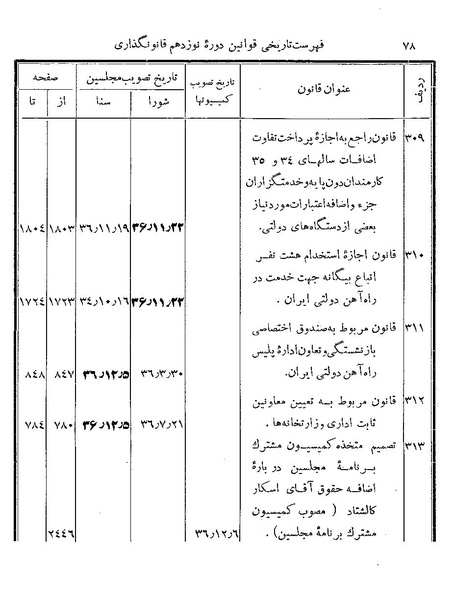 ۷۸ فهرست تاریخی قوانین دورهٔ نوزدهم قانونگذاری
ردیف عنوان قانون تاریخ تصویب کمیسیونها تاریخ تصویب مجلسین صفحه
شورا سنا از تا
۳۰۹ قانون راجع به اجازهٔ پرداخت تفاوت
اضافات سالهای ۳۴ و ۳۵
کارمندان دون پایه و خدمتگزاران
جزء و اضافه اعتبارات مورد نیاز
بعضی از دستگاه‌های دولتی. ۳۶٫۱۱٫۲۲ ۳۶٫۱۱٫۱۹ ۱۸۰۳ ۱۸۰٤
۳۱۰ قانون اجازهٔ استخدام هشت نفر
اتباع بیگانه جهت خدمت در
راه آهن دولتی ایران . ۳۶٫۱۱٫۲۲ ۳٤٫۱۰٫۱۶ ۱۷۲۳ ۱۷۲٤
۳۱۱ قانون مربوط به صندوق اختصاصی
بازنشستگی و تعاون ادارهٔ پلیس
راه آهن دولتی ایران. ۳۶٫۳٫۳۰ ۳۶٫۱۲٫۵ ۸٤۷ ۸٤۸
۳۱۲ قانون مربوط به تعیین معاونین
ثابت اداری وزارتخانه‌ها . ۳۶٫۷٫۲۱ ۳۶٫۱۲٫۵ ۷۸۰ ۷۸٤
۳۱۳ تصمیم متخذه کمیسیون مشترک
برنامهٔ مجلسین دربارهٔ
اضافه حقوق آقای اسکار
کالشتاد ( مصوب کمیسیون
مشترک برنامهٔ مجلسین) . ۳۶٫۱۲٫۶ ۲٤٤۶